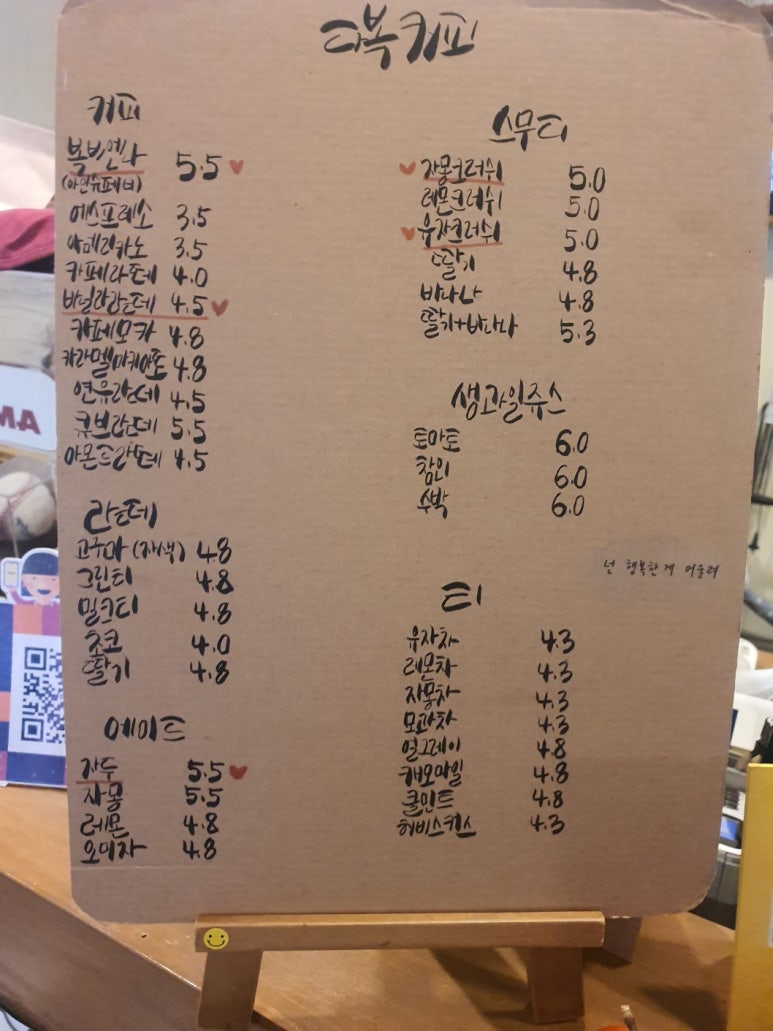 다복커피
커피
복비엔나 5.5
(아인슈페너)
에스프레소 3.5
아메리카노 3.5
카페라떼 4.0
바닐라라떼 4.5
카페모카 4.8
카라멜마키아또 4.8
연유라떼 4.5
큐브라떼 5.5
아몬드라떼 4.5
라떼
고구마 (자색) 4.8
그린티 4.8
밀크티 4.8
초코 4.0
딸기 4.8
에이드
자두 5.5
자몽 5.5
레몬 4.8
오미자 4.8
스무디
자몽크러쉬 5.0
레몬크러쉬 5.0
유자크러쉬 5.0
딸기 4.8
바나나 4.8
딸기+바나나 5.3
생과일쥬스
토마토 6.0
참외 6.0
수박 6.0
넌 행복한게 어울려
티
유자차 4.3
레몬차 4.3
자몽차 4.3
모과차 4.3
얼그레이 4.8
캐모마일 4.8
쿨민트 4.8
히비스커스 4.3